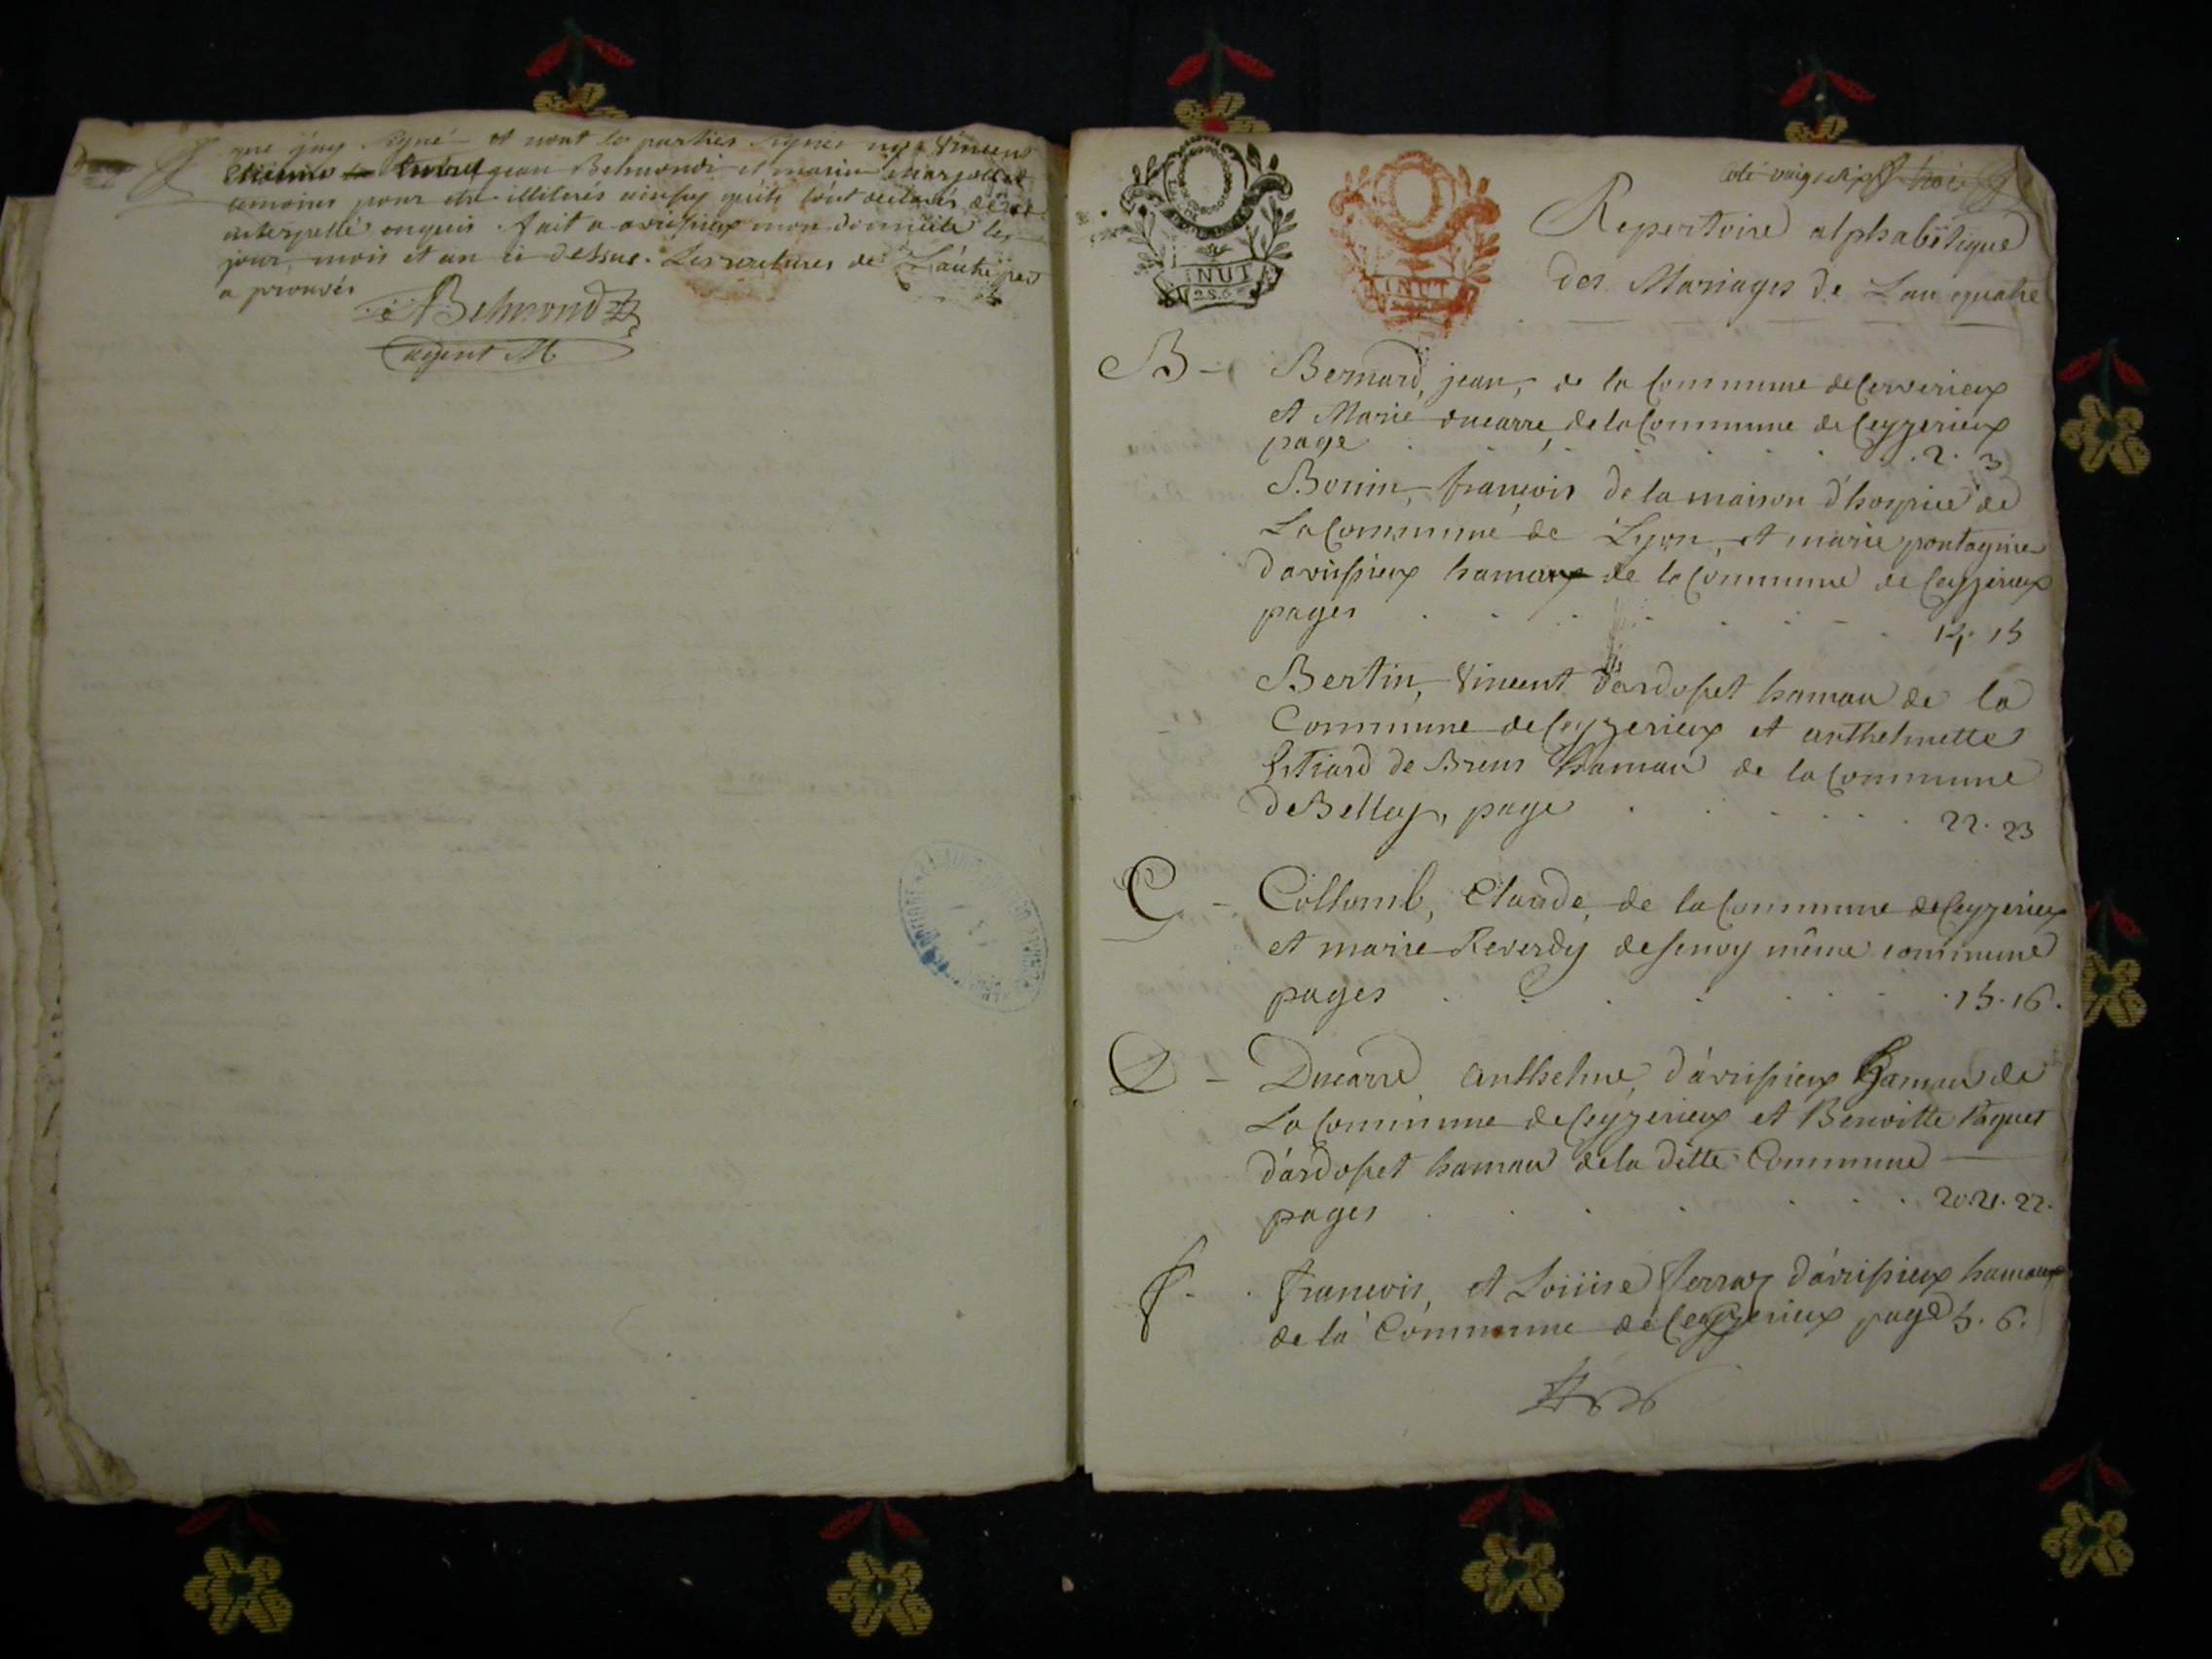 que j'ay signé et nont les parties signés ny Vincent
jean Belmond et marin
temoins pour etre illiterés ainsy qu'ils l'ont declarés de ce
interpellé enquis. fait a avrissieux mon domicile les
jour, mois et an ci dessus. Les ratures de L'autre par
a prouvés
Belmond
agent M
coté vingt
Repertoire alphabétique
des Mariages de L'an quatre
INUT
25.C
INUT
B - Bernard, jean, de la Commune de Cerverieux
et Marie ducarre, de la Commune de Ceyzerieux
page . . . . . . . 2. 3
Bonin, françois de la maison d'hospice de
La Commune de Lyon, et marie pontagnier
davrissieux hameaux de la Commune de Ceyzerieux
pages . . . . . . . 14. 15
Bertin, Vincent d'ardosset hamau de la
Commune de Ceyzerieux et anthelmette
de Brens hamau de la Commune
de Belley, page . . . . . . 22. 23
C - Collomb, Claude, de la Commune de Ceyzerieux
et marie Reverdy de senoy même commune
pages . . . . . . . 15. 16.
D - Ducarre anthelme, d'avrissieux hamau de
La Commune de Ceyzerieux et Benoitte Paquet
d'ardosset hamau de la ditte Commune
pages . . . . . . 20. 21. 22.
f. françois, et Loüise ferraz d'avrissieux hamaux
de la Commune de Ceyzerieux page 5. 6.